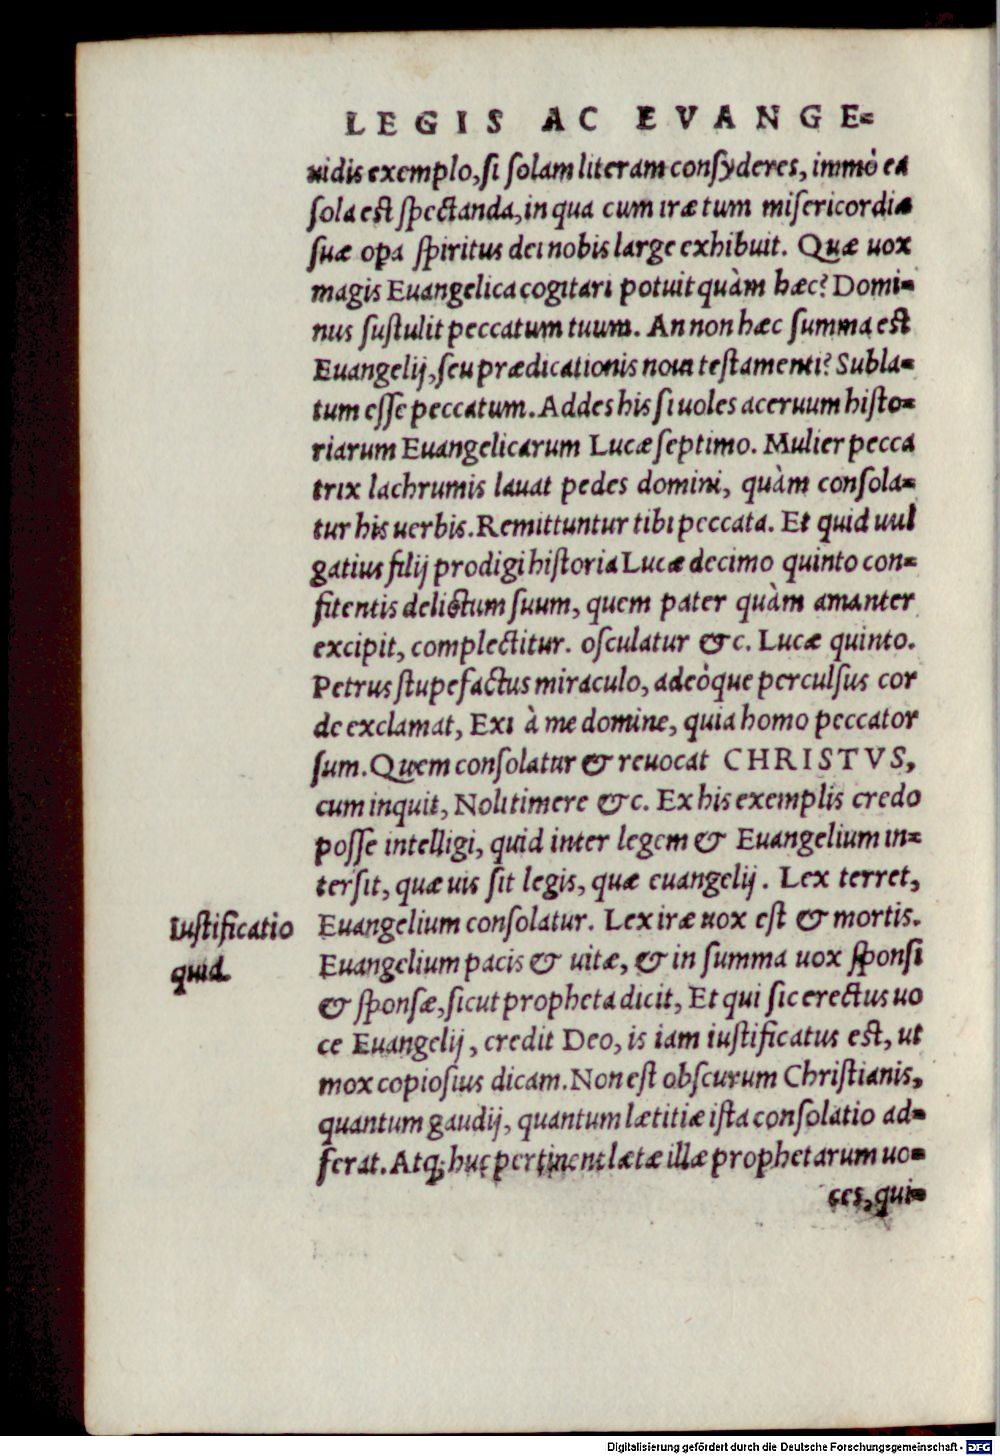 LEGIS AC EVANGE=
uidis exemplo, si solam literam consyderes, immò ea
sola est spectanda, in qua cum iræ tum misericordiæ
suæ opa spiritus dei nobis large exhibuit. Quæ uox
magis Euangelica cogitari potuit quàm hæc? Domi=
nus sustulit peccatum tuum. An non hæc summa est
Euangelij, seu prædicationis noui testamenti? Subla=
tum esse peccatum. Addes his si uoles aceruum histo=
riarum Euangelicarum Lucæ septimo. Mulier pecca
trix lachrumis lauat pedes domini, quàm consola=
tur his uerbis. Remittuntur tibi peccata. Et quid uul
gatius filij prodigi historia Lucæ decimo quinto con=
fitentis delictum suum, quem pater quàm amanter
excipit, complectitur. osculatur &c. Lucæ quinto.
Petrus stupefactus miraculo, adeòque perculsus cor
de exclamat, Exi à me domine, quia homo peccator
sum. Quem consolatur & reuocat CHRISTVS,
cum inquit, Noli timere &c. Ex his exemplis credo
posse intelligi, quid inter legem & Euangelium in=
tersit, quæ uis sit legis, quæ euangelij. Lex terret,
Euangelium consolatur. Lex iræ uox est & mortis.
Euangelium pacis & uitæ, & in summa uox sponsi
& sponsæ, sicut propheta dicit, Et qui sic erectus uo
ce Euangelij, credit Deo, is iam iustificatus est, ut
mox copiosius dicam. Non est obscurum Christianis,
quantum gaudij, quantum lætitiæ ista consolatio ad=
ferat. Atq; huc pertinent lætæ illæ prophetarum uo=
ces, qui=
Iustificatio
quid.
Digitalisierung gefördert durch die Deutsche Forschungsgemeinschaft - DFG